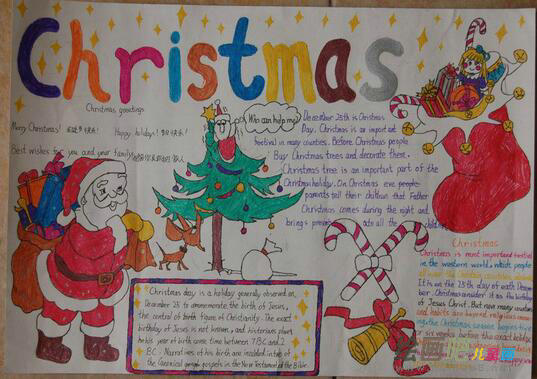 Christmas
Christmas greetings
Merry Christmas! 圣诞快乐! Happy holidays! 节日快乐!
Best wishes for you and your family
Who can help me?
December 25th is Christmas
Day. Christmas is an important
festival in many countries. Before Christmas people
Buy Christmas trees and decorate them.
Christmas tree is an important part of the
Christmas holiday. On Christmas eve people
parents tell their children that Father
Christmas comes during the night and
brings presents all the
Christmas day is a holiday generally observed on
December 25 to commemorate the birth of Jesus,
the central of birth figure of Christianity. The exact
birthday of Jesus is not known, and historians place
his year of birth some time between 7 BC and 2
BC. Narratives of his birth are included in two of
the Canonical gospels in the New Testament of the Bible.
Christmas
Christmas is most important festival
in the western world, which people
all over the
It is on the 25th day of each Decem
ber. Christmas consider it as the birthday
of Jesus Christ. But now many countries
and habits are beyond religious
the Christmas season begins five
or six weeks before the exact holiday